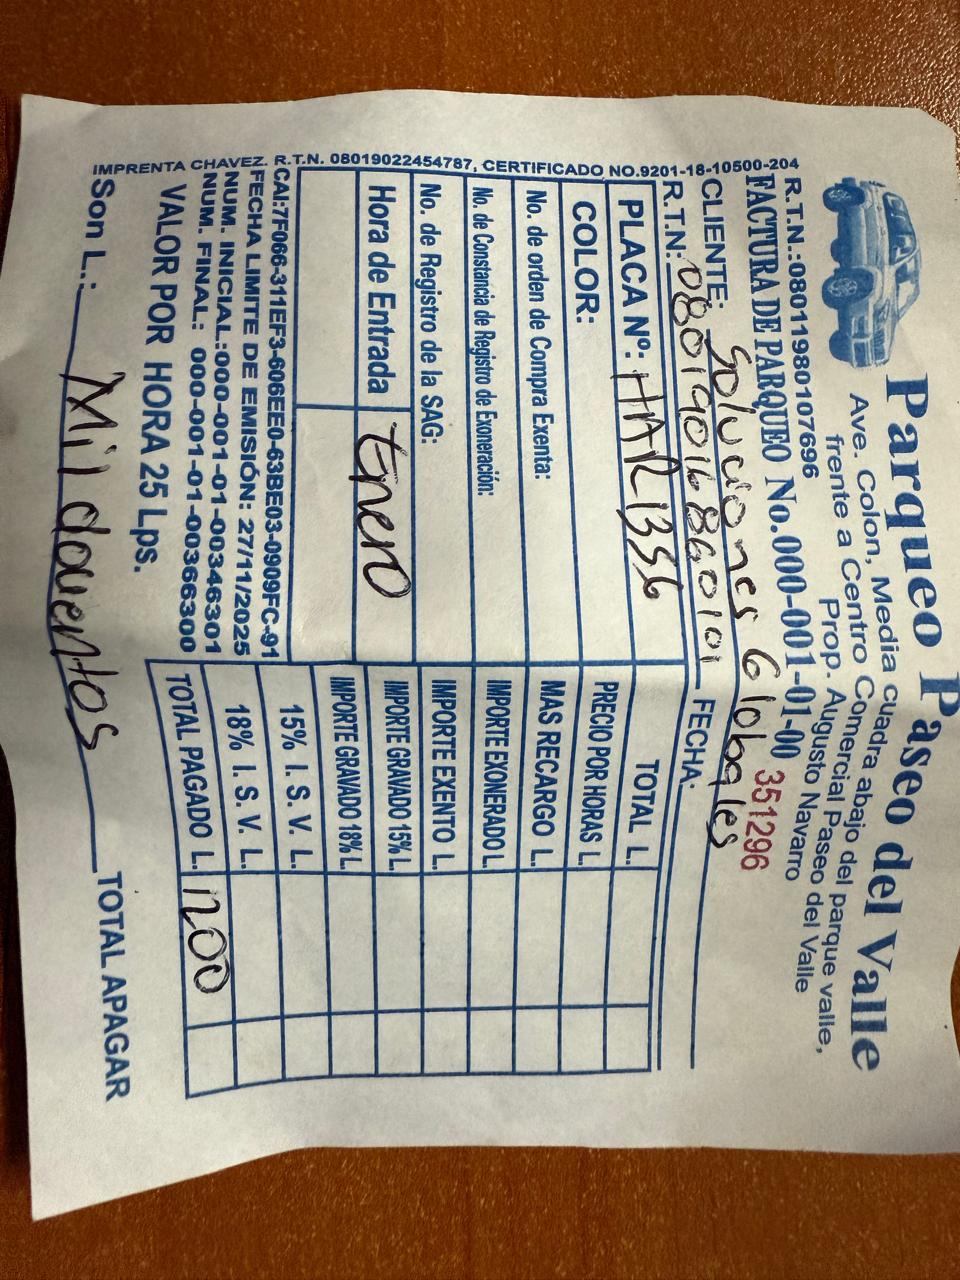 Parqueo Paseo del Valle
Ave. Colon, Media cuadra abajo del parque valle,
frente a Centro Comercial Paseo del Valle
Prop. Augusto Navarro
R.T.N.:08011980107696
FACTURA DE PARQUEO No.000-001-01-00 351296
CLIENTE: Soluciones Globales
R.T.N: 08019016860101 FECHA:
PLACA Nº: HAR 1356
COLOR:
No. de orden de Compra Exenta:
No. de Constancia de Registro de Exoneración:
No. de Registro de la SAG:
Hora de Entrada Enero
TOTAL L.
PRECIO POR HORAS L.
MAS RECARGO L.
IMPORTE EXONERADO L.
IMPORTE EXENTO L.
IMPORTE GRAVADO 15% L.
IMPORTE GRAVADO 18% L.
15% I. S. V. L.
18% I. S. V. L.
TOTAL PAGADO L. 1200
CAI:7F066-311EF3-606EE0-63BE03-0909FC-91
FECHA LIMITE DE EMISIÓN: 27/11/2025
NUM. INICIAL:000-001-01-00346301
NUM. FINAL: 000-001-01-00366300
VALOR POR HORA 25 Lps.
Son L.: Mil docientos TOTAL APAGAR
IMPRENTA CHAVEZ. R.T.N. 08019022454787, CERTIFICADO NO.9201-18-10500-204